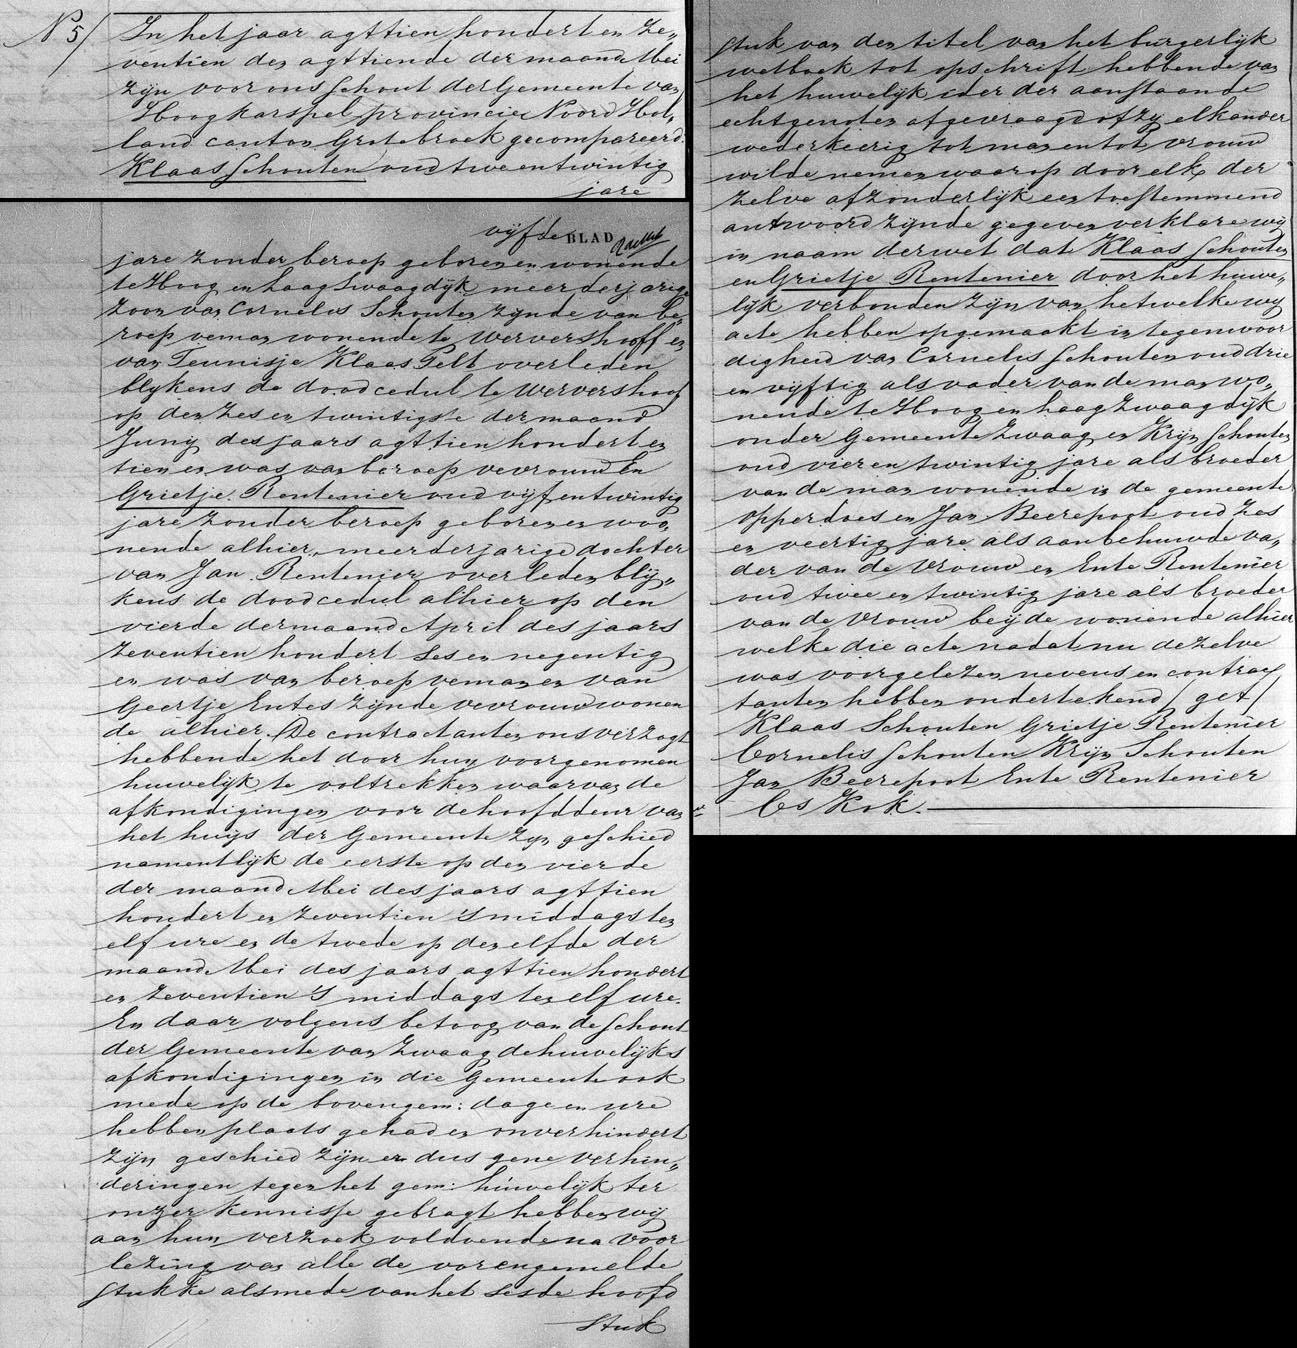 N 5
In het jaar agttien hondert en ze,,
ventien den agttiende der maand Mei
zijn voor ons Schout der Gemeente van
Hoogkarspel provincie Noord Hol,,
land canton Grotebroek gecompareerd
Klaas Schouten oud twee en twintig
jare
vijfde BLAD
jare zonder beroep geboren en wonende
te Hoog en haag Zwaagdijk, meerderjarige
zoon van Cornelis Schouten zijnde van be
roep veman wonende te Wervershooff en
van Teunisje Klaas Pelt overleden
blykens de doodcedul te Wervershoof
op den zes en twintigste der maand
Junij des jaars agttien hondert en
tien en was van beroep vevrouw En
Grietje Rentenier oud vijf en twintig
jare zonder beroep geboren en woo,,
nende alhier, meerderjarige dochter
van Jan Rentenier overleden blij,,
kens de doodcedul alhier op den
vierde der maand April des jaars
zeventien hondert ses en negentig
en was van beroep veman en van
Geertje Entes zijnde vevrouw wonen
de alhier. De contractanten ons verzogt
hebbende het door hun voorgenomen
huwelijk te voltrekken waarvan de
afkondigingen voor de hoofddeur van
het huijs der Gemeente zijn geschied
namentlijk de eerste op den vierde
der maand Mei des jaars agttien
hondert en zeventien 's middags ten
elf ure en de twede op den elfde der
maand Mei des jaars agttien hondert
en zeventien 's middags ten elf ure.
En daar volgens betoog van de Schout
der Gemeente van Zwaag de huwelijks
afkondigingen in die Gemeente ook
mede op de bovengem: dage en ure
hebben plaats gehad en onverhindert
zijn geschied zijn er dus gene verhin,,
deringen tegen het gem: huwelijk ter
onzer kennisse gebragt hebben wij
aan hun verzoek voldoende na voor
lezing van alle de vorengemelde
stukke alsmede van het sesde hoofd
stuk
stuk van den titel van het burgerlijk
wetboek tot opschrift hebbende van
het huwelijk ider der aanstaande
echtgenoten afgevraagd of zy elkander
wederkeerig tot man en tot vrouw
wilde nemen waar op door elk der
zelve afzonderlijk een toestemmend
antwoord zijnde gegeven verklare wij
in naam der wet dat Klaas Schouten
en Grietje Rentenier door het huwe,,
lijk verbonden zijn van hetwelke wij
acte hebben opgemaakt in tegenwoor
digheid van Cornelis Schouten oud drie
en vijftig als vader van de man wo,,
nende te Hoog en haag Zwaagdijk
onder Gemeente Zwaag en Krijn Schouten
oud vier en twintig jare als broeder
van de man wonende in de gemeente
Opperdoes en Jan Beerepoot oud zes
en veertig jare als aanbehuwde va,,
der van de vrouw en Ente Rentenier
oud twee en twintig jare als broeder
van de vrouw beijde wonende alhier
welke die acte nadat nu dezelve
was voorgelezen nevens en contrac
tanten hebben ondertekend /get/
Klaas Schouten Grietje Rentenier
Cornelis Schouten Krijn Schouten
Jan Beerepoot Ente Rentenier
Cs Kok.